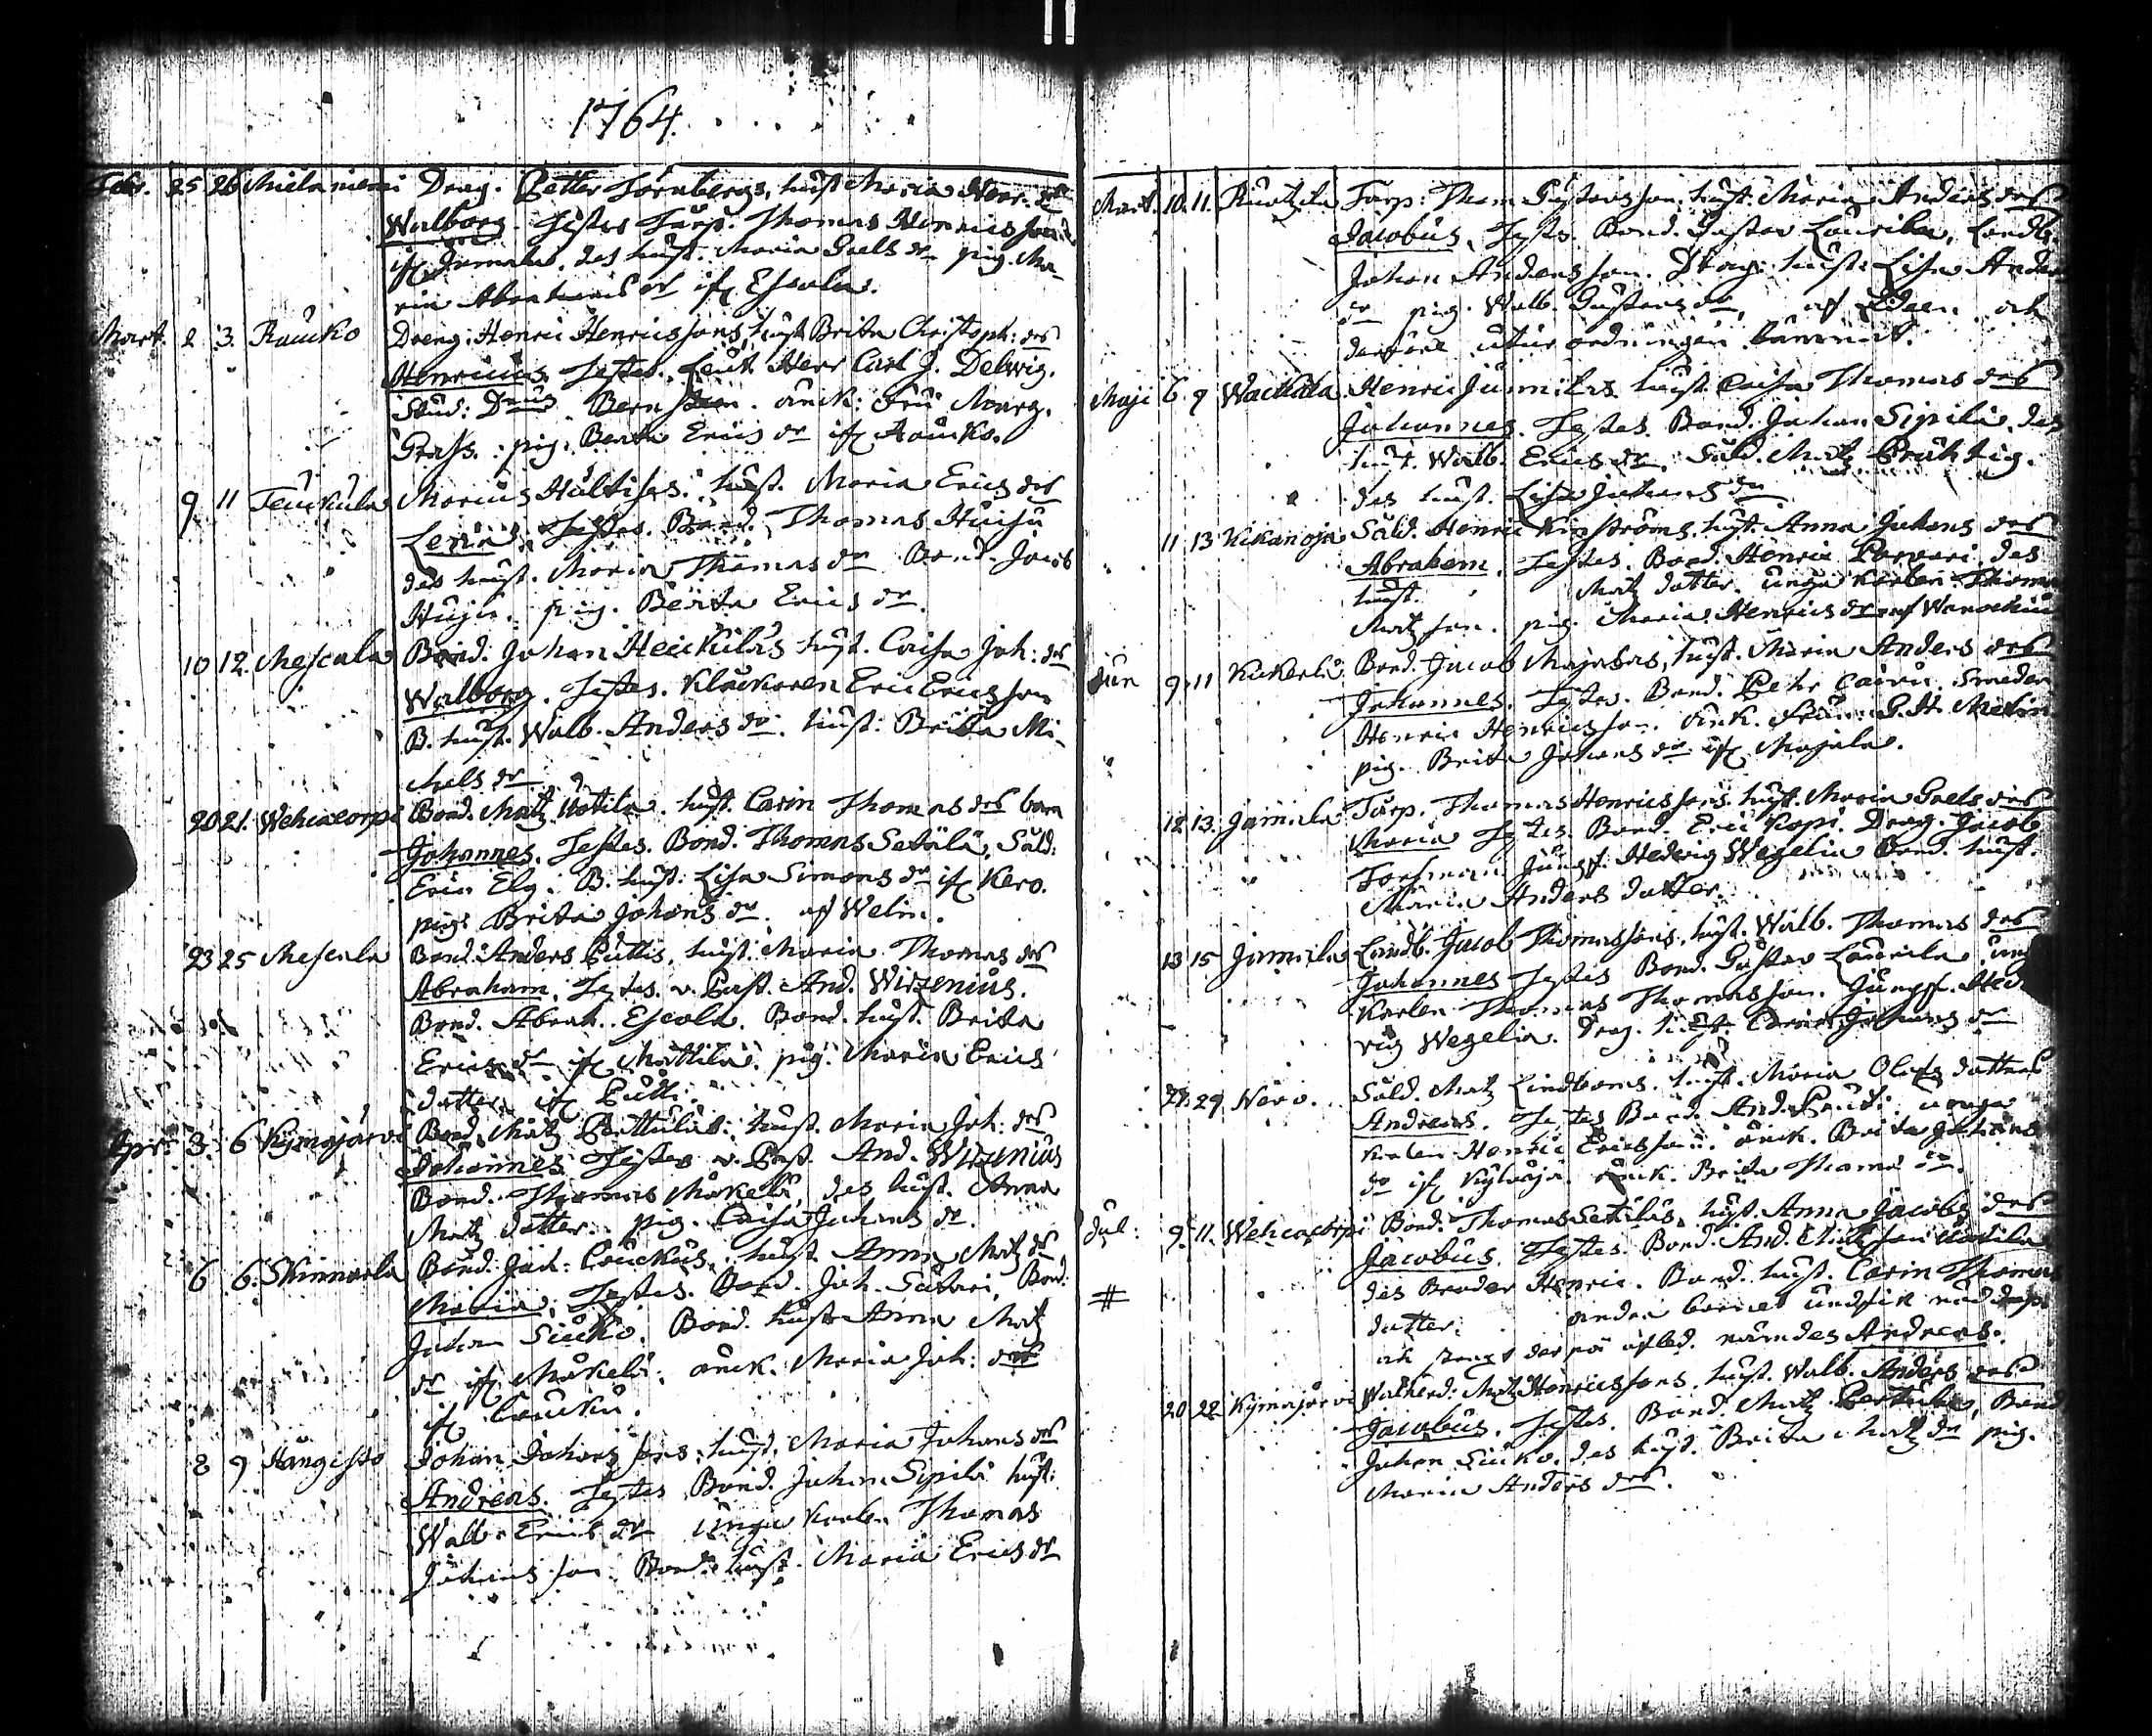 1764.
Febr. 25 26 Mielaniemi Drag. Petter Törnbergs, hust. Maria Henr. dr
Walborg. Testes Torp. Thomas Henricsson
if. des hust. Maria dr pig. Ma-
ria Abrahams dr if. Escola.
Mart. 2 3. Raucko Dreng: Henric Henricssons, hust. Brita Christoph: drs
Henricus. Testes. Leut. Herr Carl J. Delwig.
Stud: Bern änck: Fru Marg.
Grass. pig. Berta Erics dr if. Raucko.
9 11 Teuckula Marcus Hultisas. hust. Maria Erics drs
Lena. Testes. Bond. Thomas Huisu
des hust. Maria Thomas dr Bond. Jacob
Huju. pig. Berta Erics dr.
10 12. Mescala Bond. Johan Heickulas hust. Caisa Joh: drs
Walborg. Testes. Klåckaren Eric Ericsson
B. hust. Walb. Anders dr. hust: Brita Mi-
chels dr
20 21. Wehcacorpi Bond. Matz Uotila. hust. Carin Thomas drs barn
Johannes. Testes. Bond. Thomas Setälä, Sold:
Eric Elg. B. hust: Lisa Simons dr if. Kero.
pig: Brita Johans dr. af
23 25 Mescala Bond. Anders Puttis, hust. Maria Thomas drs
Abraham. Testes. v. Past. And. Wirzenius.
Bond. Abrah. Escola. Bond. hust. Brita
Erics dr if. Mattila. pig. Maria Erics
datter if. Putti.
Apr: 3. 6 Kymajärvi Bond. Matz Perttulas: hust. Maria Joh: drs
Johannes Testes v. Past. And. Wirzenius
Bond. Thomas Mäkelä, des hust. Anna
Matz datter. pig. Caisa Johans dr.
6 6. Skinnarla Bond. Joh: Louckus, hust. Anna Matz dr
Maria. Testes. Bond. Joh. Bond.
Johan Siucko. Bond. hust. Anna Matz
dr if. Mäkelä. änck. Maria Joh: dr
if. Loucku.
8 9 Hangisto Johan Johanssons. hust. Maria Johans drs
Andreas. Testes Bond. Johan Sipilä hust:
Walb. Erics dr unga karlen Thomas
Johansson Bond. hust. Maria Erics dr
Mart. 10. 11. Torp: Thom. Gustafsson, hust. Maria Anders drs
Jacobus. Testes. Bond. Gustav Laurila, Landb.
Johan Andersson. Drag: hust: Lisa Anders
dr pig. Walb. Gustavs dr, och
derföre utur ordningen kommit.
Maji 6 9 Wachala Henric Junnilas. hust. Caisa Thomas drs
Johannes. Testes. Bond. Johan Sipilä. des
hust. Walb. Erics dr. Sold. Matz Prähtig.
des hust. Lisa Johans dr
11 13 Kikanoja Sold. Henric hust. Anna Johans drs
Abraham. Testes. Bond. Henric des
hust. Matz datter. unga karlen Thomas
Matzson. pig. Maria Henrics dr af
Jun 9. 11 Kukerla Bond. Jacob Majalas, hust. Maria Anders drs
Johannes. Testes. Bond. Pehr Smeden
Henric Henricsson. änk. Frun G. H. Melin
pig. Brita Johans dr if. Majala.
12. 13. Jamiela Torp. Thomas Henricssons. hust. Maria drs
Maria Testes. Bond. Eric Kopi. Drag. Jacob
Forsman Jungf. Hedvig Wegelia Bond. hust.
Maria Anders datter.
13 15 Jamiela Landb. Jacob Thomassons. hust. Walb. Thomas drs
Johannes Testes Bond. Gustav Laurila, unga
karlen Thomas Thomasson. Jungf. Hed-
vig Wegelia. Drag. hust. Carin Johans dr
27. 29 Nero. Sold. Matz Lindboms. hust. Maria Olofs datters
Andreas. Testes Bond. And. Pauti. unga
karlen Henric Ericsson. änck. Brita Johans
dr if. Kyläoja. änck. Brita Thoma dr.
Jul: 9. 11. Wehcacorpi Bond. Thomas Setäläs, hust. Anna Jacobs drs
Jacobus. Testes. Bond. And. Uotila
des Broder Henric. Bond. hust. Carin Thomas
# datter. andra barnet undfick nöddop
och strax der på afled. nämdes Andreas.
20 22 Kymajärvi Matz Henricssons. hust. Walb. Anders drs
Jacobus. Testes. Bond. Matz Perttula, Bond
Johan Siuko. des hust. Brita Matz dr pig.
Maria Anders dr.